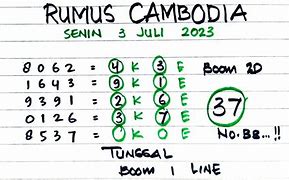 RUMUS CAMBODIA
SENIN 3 JULI 2023
8062 = 4 K 3 E BOOM 2D
1643 = 9 K 1 E
9391 = 2 K 6 E 37
0126 = 3 K 7 E
8537 = 0 K 0 E NO.BB...!!
TUNGGAL
BOOM 1 LINE